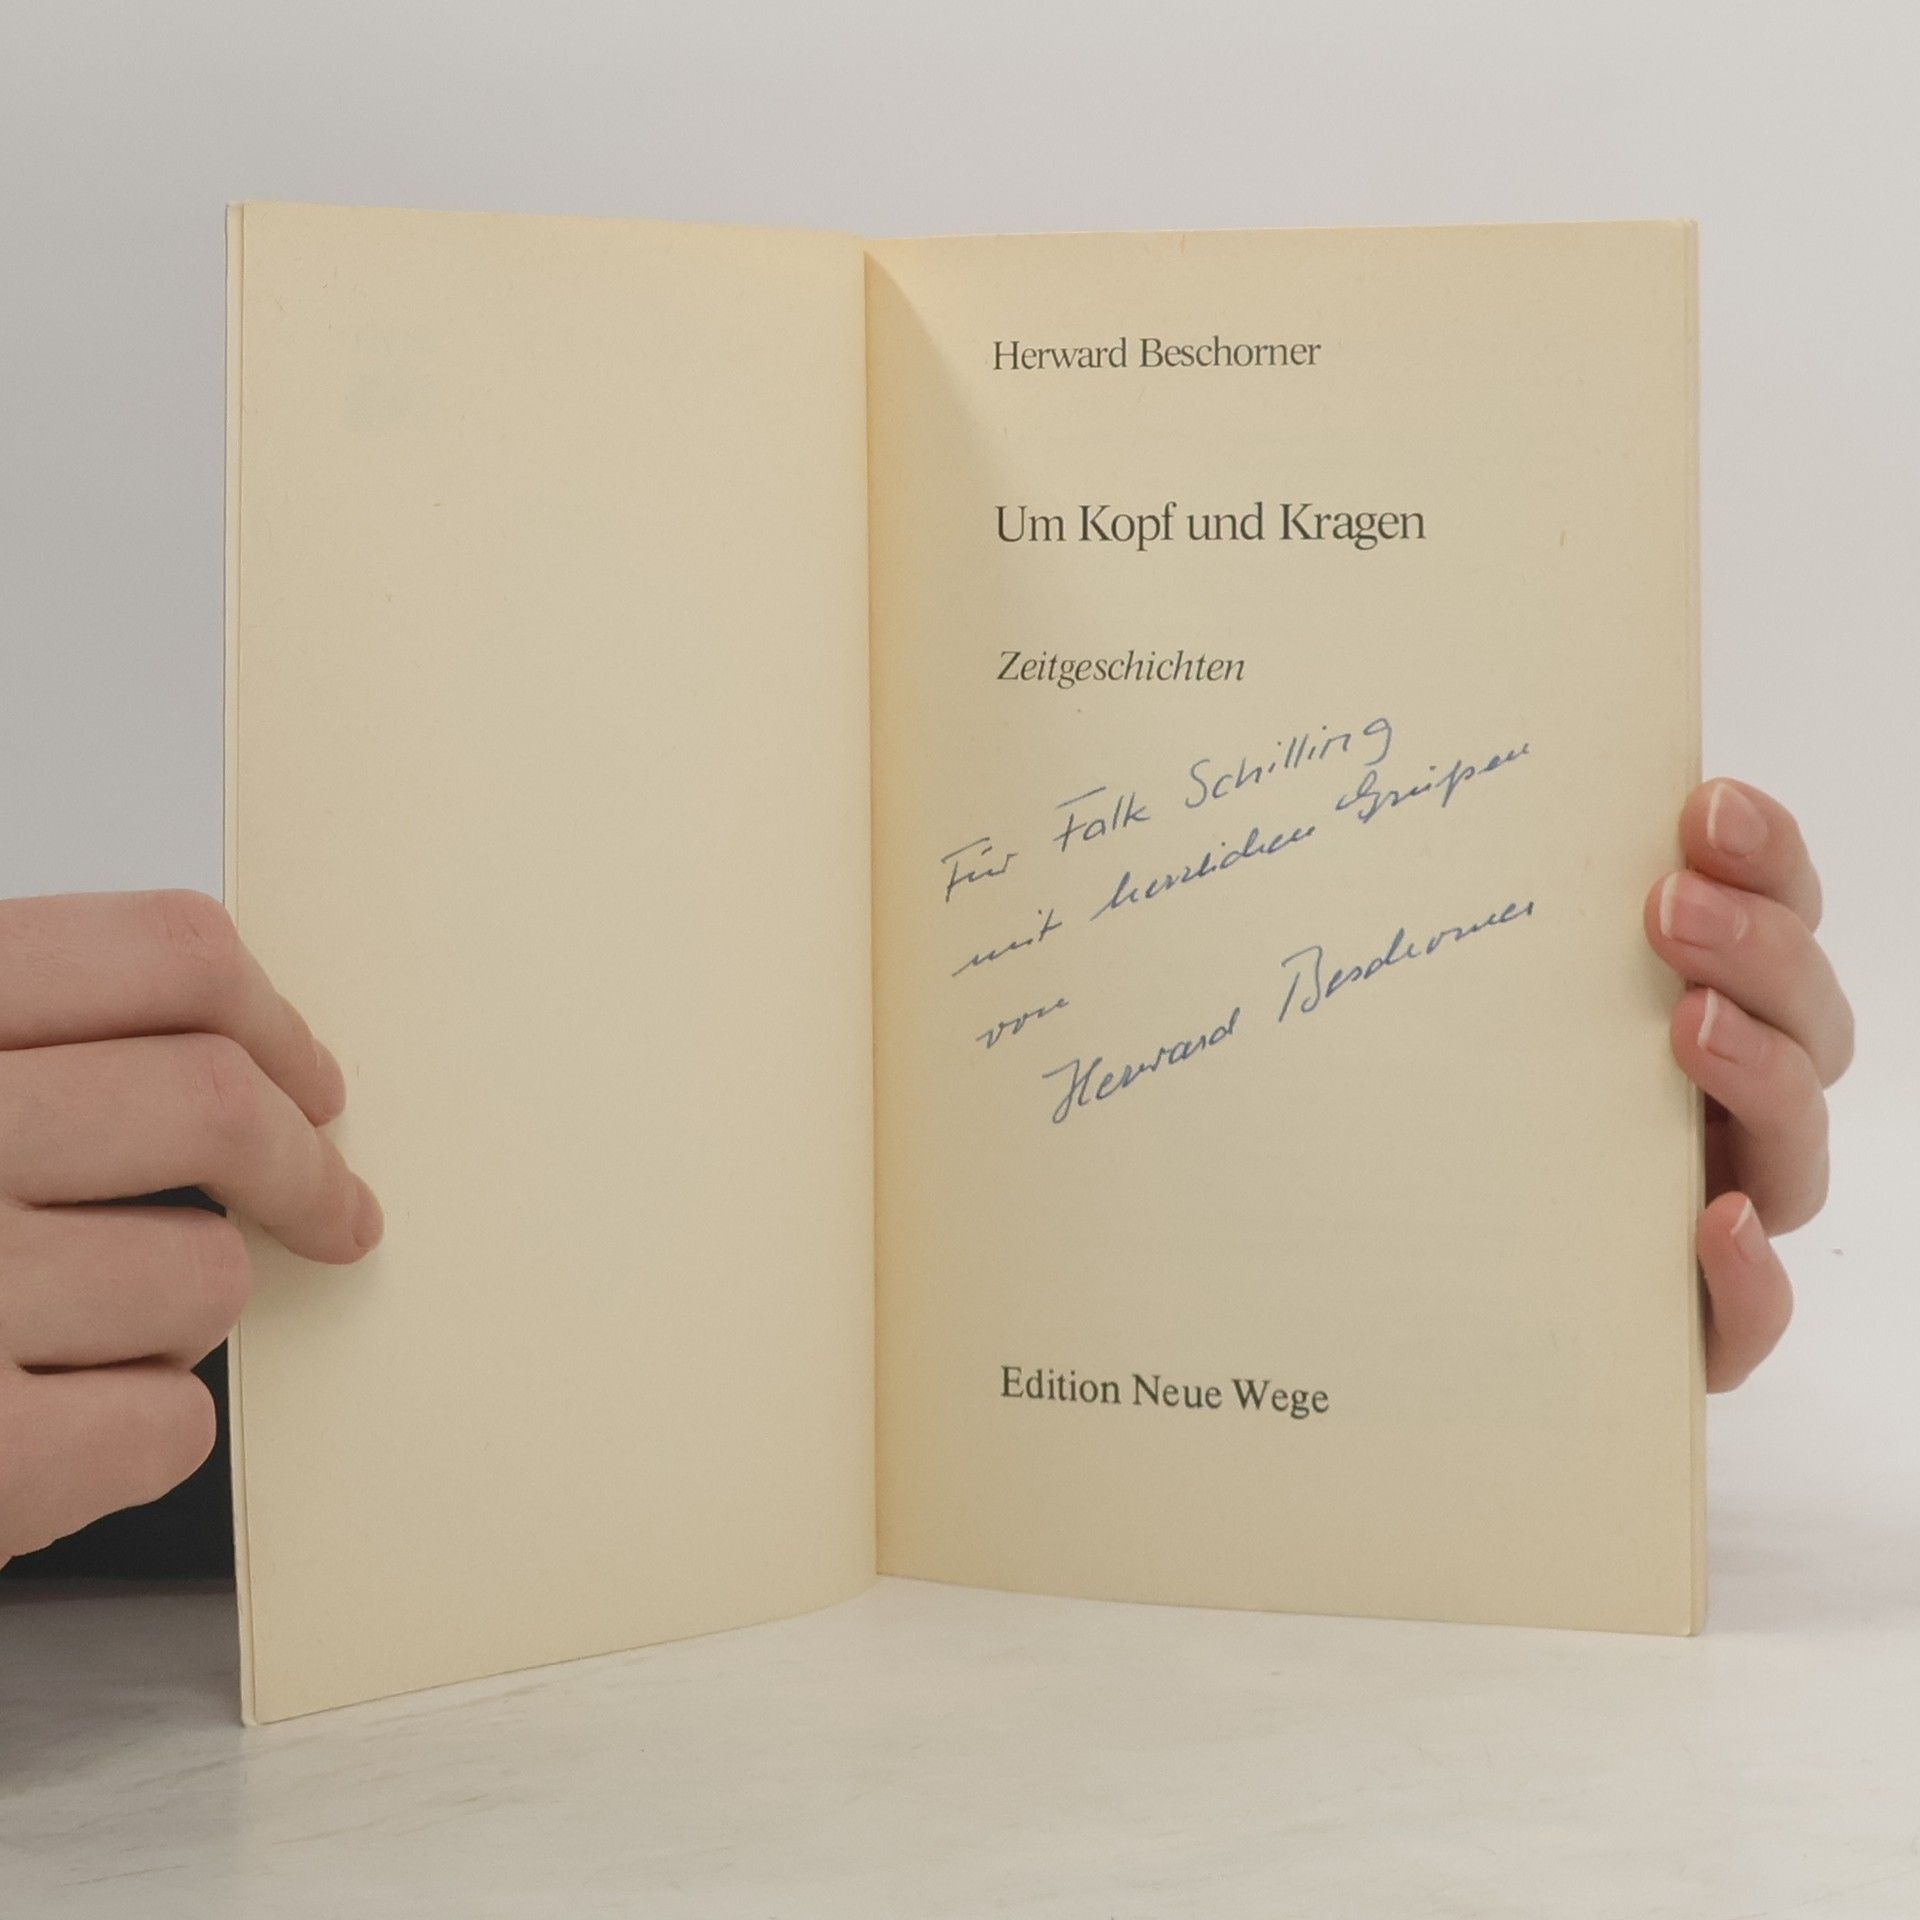 Herward Beschorner
Um Kopf und Kragen
Zeitgeschichten
Für Falk Schilling
mit herzlichen Grüßen
von
Herward Beschorner
Edition Neue Wege